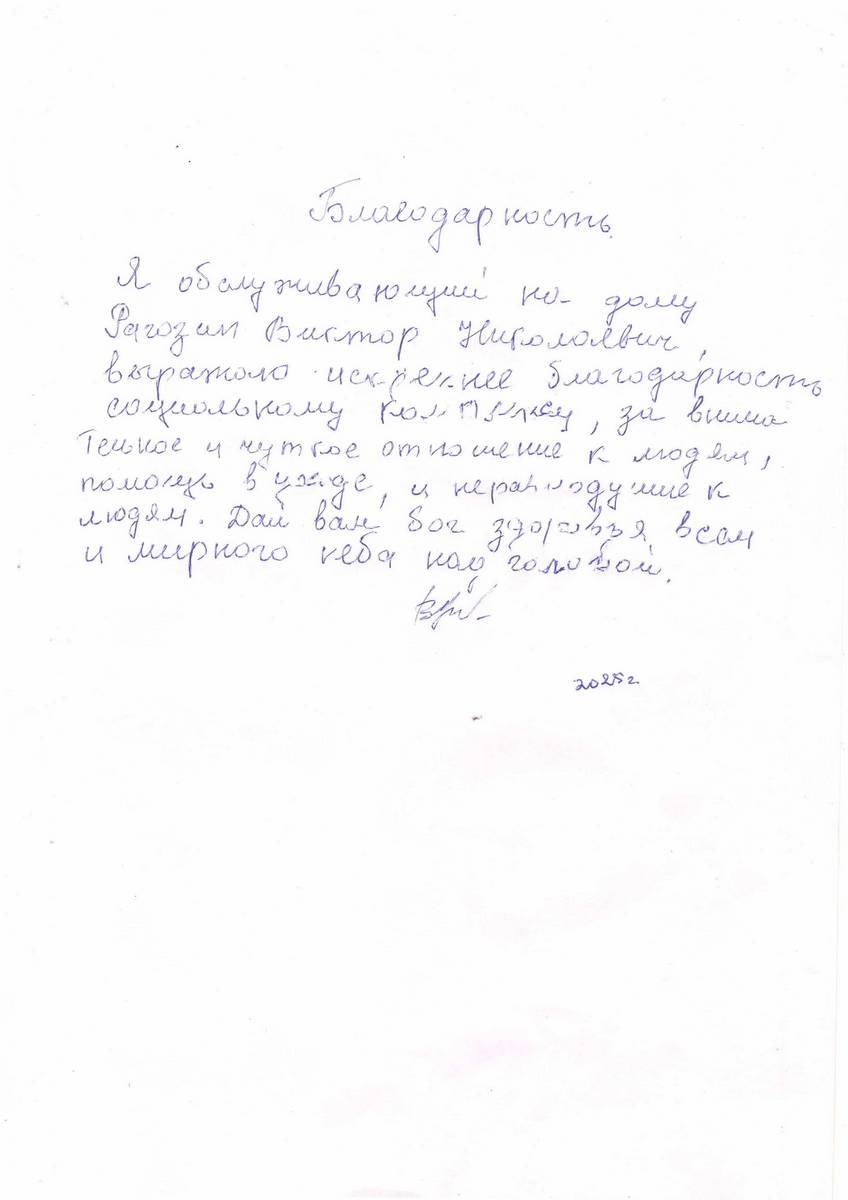 Благодарность.
Я обслуживающий на дому
Рагозин Виктор Николаевич,
выражаю искреннее благодарность
социальному за внима
тельное и чуткое отношение к людям,
помощь в ужде, и неравнодушие к
людям. Дай вам бог здоровья всем
и мирного неба над головой.
2025г.